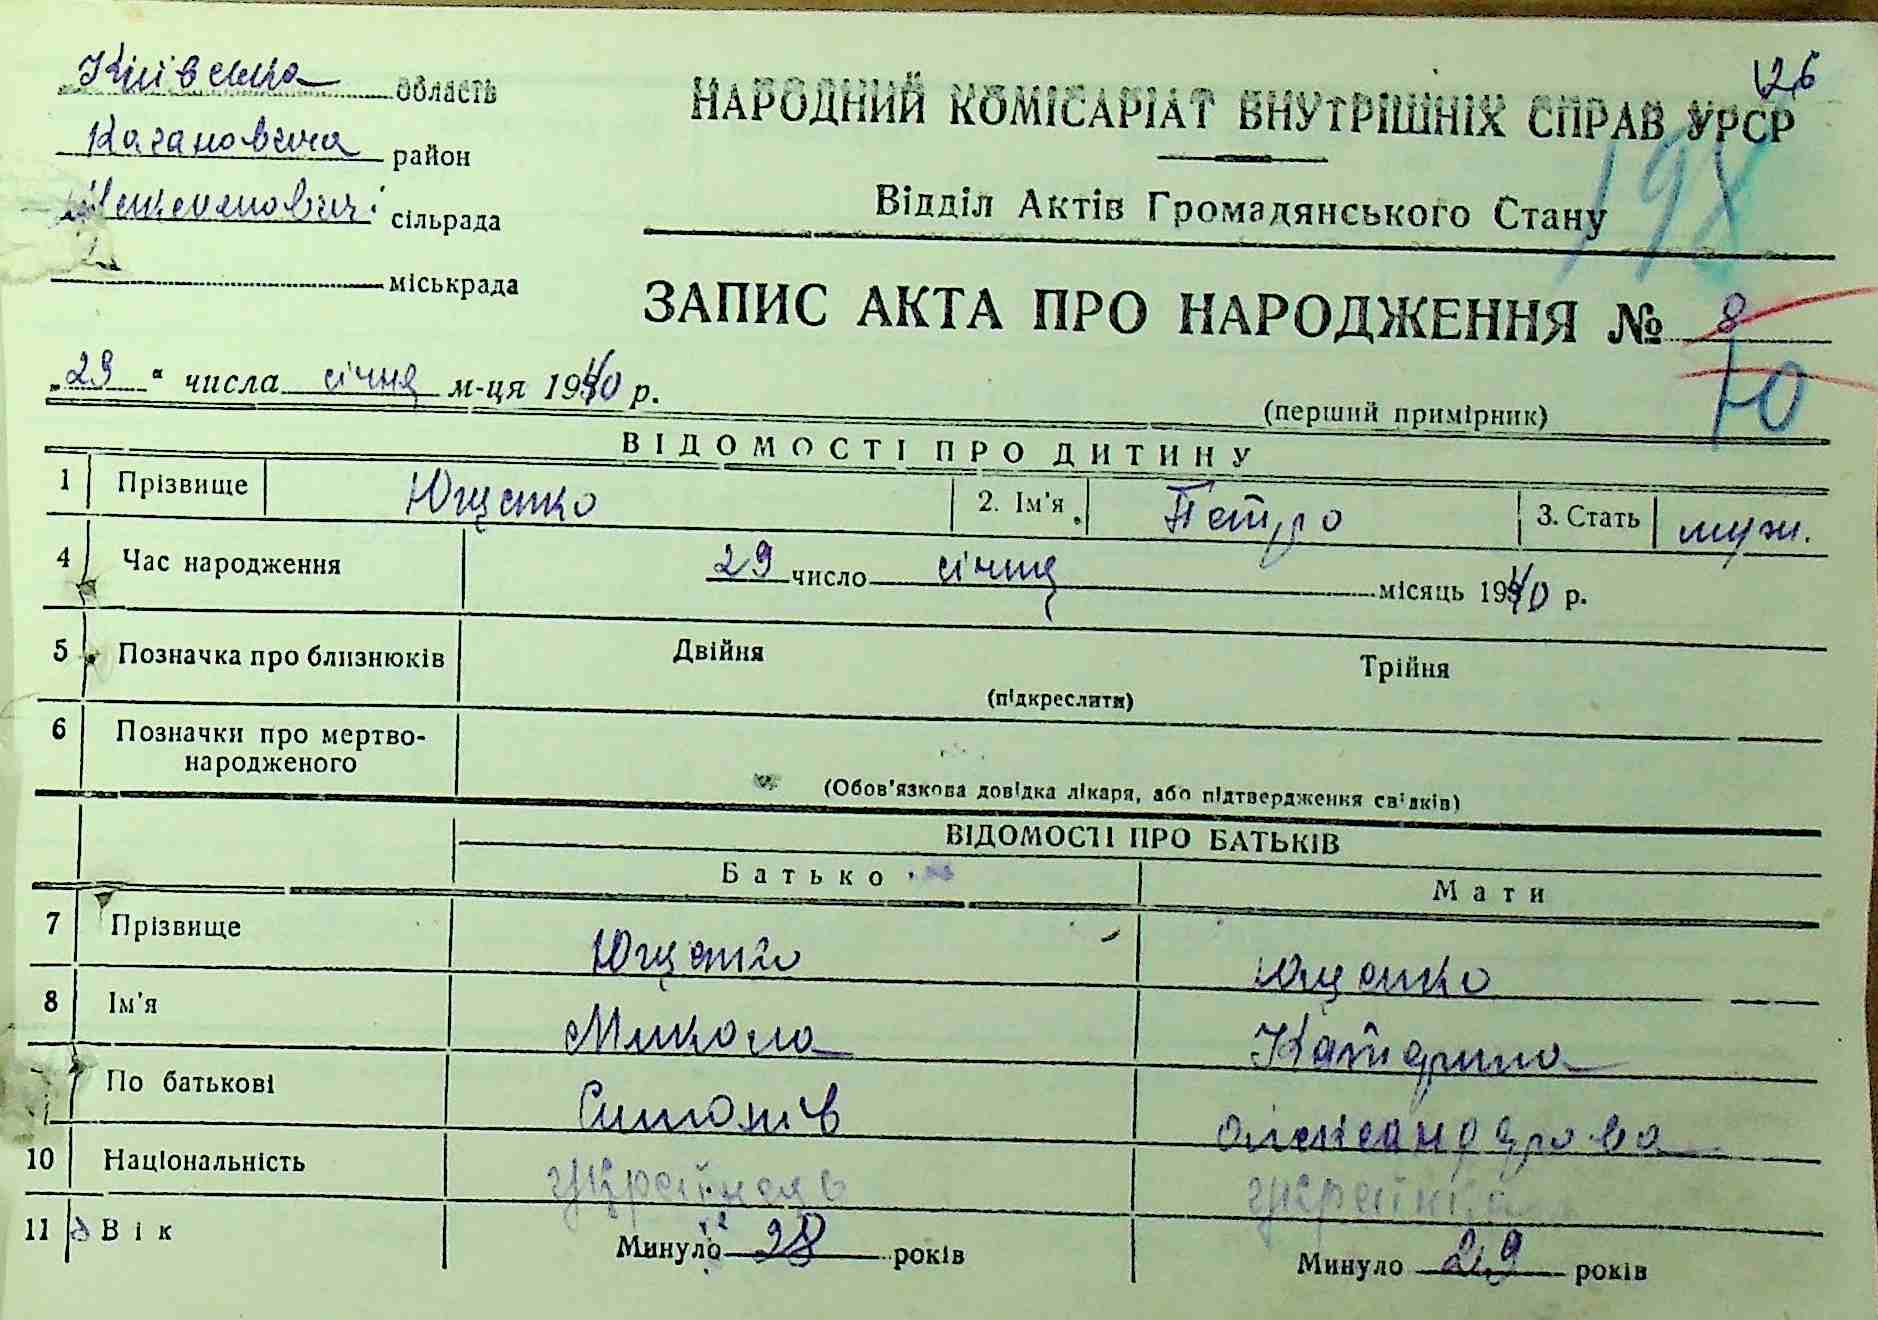 Київська область
126
НАРОДНИЙ КОМІСАРІАТ ВНУТРІШНІХ СПРАВ УРСР
Кагановича район
198
Відділ Актів Громадянського Стану
сільрада
міськрада
ЗАПИС АКТА ПРО НАРОДЖЕННЯ № 8
Ю
„29“ числа січня м-ця 1940 р.
(перший примірник)
ВІДОМОСТІ ПРО ДИТИНУ
1 Прізвище Ющенко 2. Ім'я Петро 3. Стать муж.
4 Час народження 29 число січня місяць 1940 р.
5 Позначка про близнюків Двійня Трійня
(підкреслити)
6 Позначки про мертво-
народженого
(Обов'язкова довідка лікаря, або підтвердження свідків)
ВІДОМОСТІ ПРО БАТЬКІВ
Батько Мати
7 Прізвище Ющенко Ющенко
8 Ім'я Микола Катерина
По батькові Симонів Олександрова
10 Національність українець українка
11 Вік Минуло 28 років Минуло 29 років